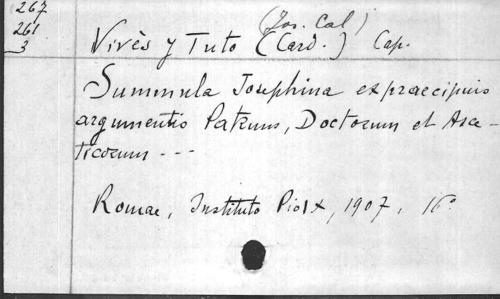 267
261
3
(Jos. Cal)
Vivès y Tuto (Card.) Cap.
Summula Josephina ex praecipuis
argumentis Patrum, Doctorum et Asce-
ticorum ---
Romae, Instituto Pio IX, 1907, 16º